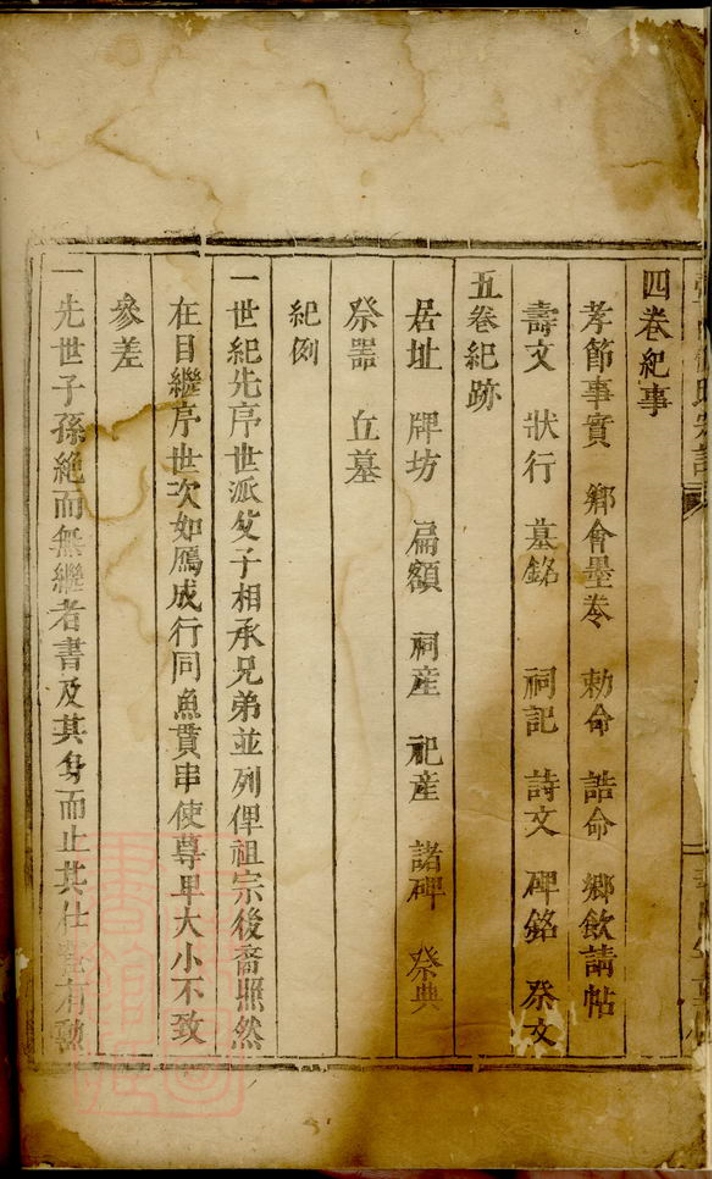 四卷紀事
孝節事實 鄉會墨卷 勅命 誥命 鄉飲請帖
壽文 狀行 墓銘 祠記 詩文 碑銘 祭文
五卷紀跡
居址 牌坊 扁額 祠産 祀産 諸碑 祭典
祭器 丘墓
紀例
一世紀先序世派父子相承兄弟並列俾祖宗後裔照然
在目繼序世次如鴈成行同魚貫串使尊卑大小不致
參差
一先世子孫絶而無繼者書及其身而止其仕 有勲